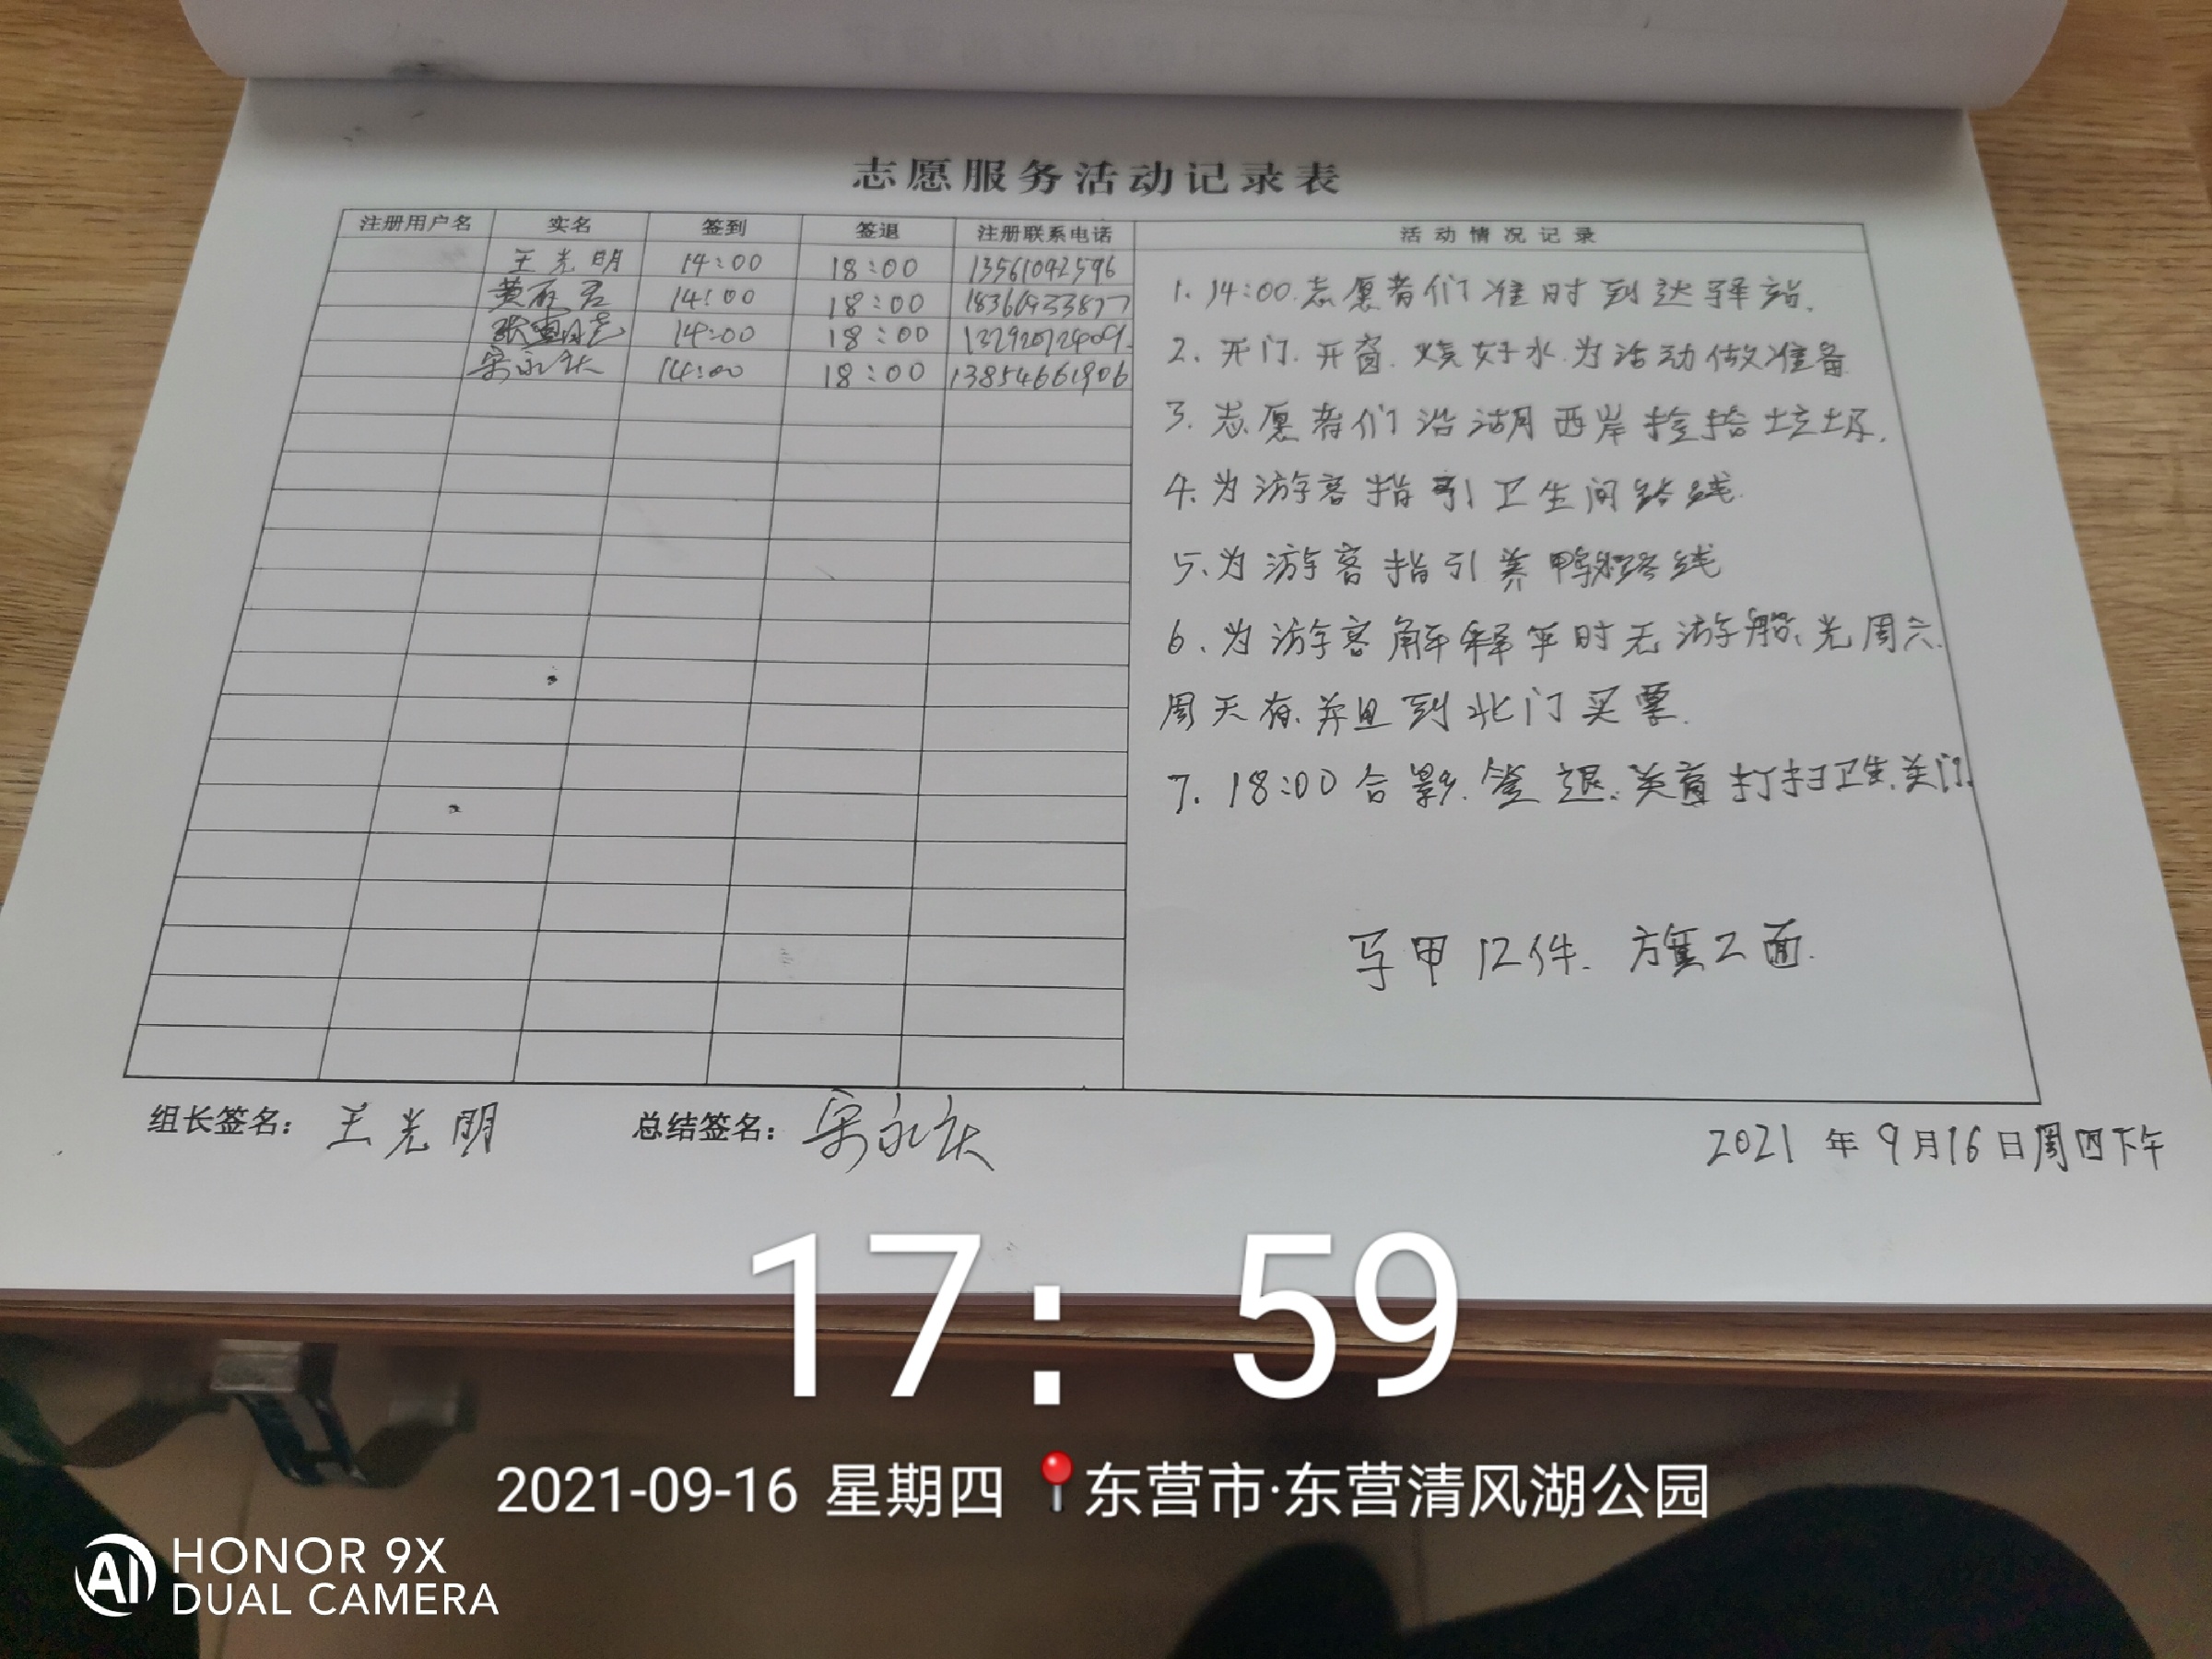 志愿服务活动记录表
注册用户名 实名 签到 签退 注册联系电话 活动情况记录
王光明 14:00 18:00 13561092596
14:00 18:00
14:00 18:00
宋永庆 14:00 18:00 13854661906
1. 14:00.志愿者们准时到达驿站.
2. 开门.开窗.烧好水.为活动做准备
3. 志愿者们沿湖西岸捡拾垃圾.
4. 为游客指引卫生间路线.
5、为游客指引养鸭路线
6、为游客解释平时无游船、光周六.
周天有、并且到北门买票.
7. 18:00合影.签退.关窗打扫卫生.关门.
马甲12件. 旗2面.
组长签名: 王光明 总结签名: 宋永庆
2021年9月16日周四下午
17: 59
2021-09-16 星期四 东营市·东营清风湖公园
AI HONOR 9X
DUAL CAMERA